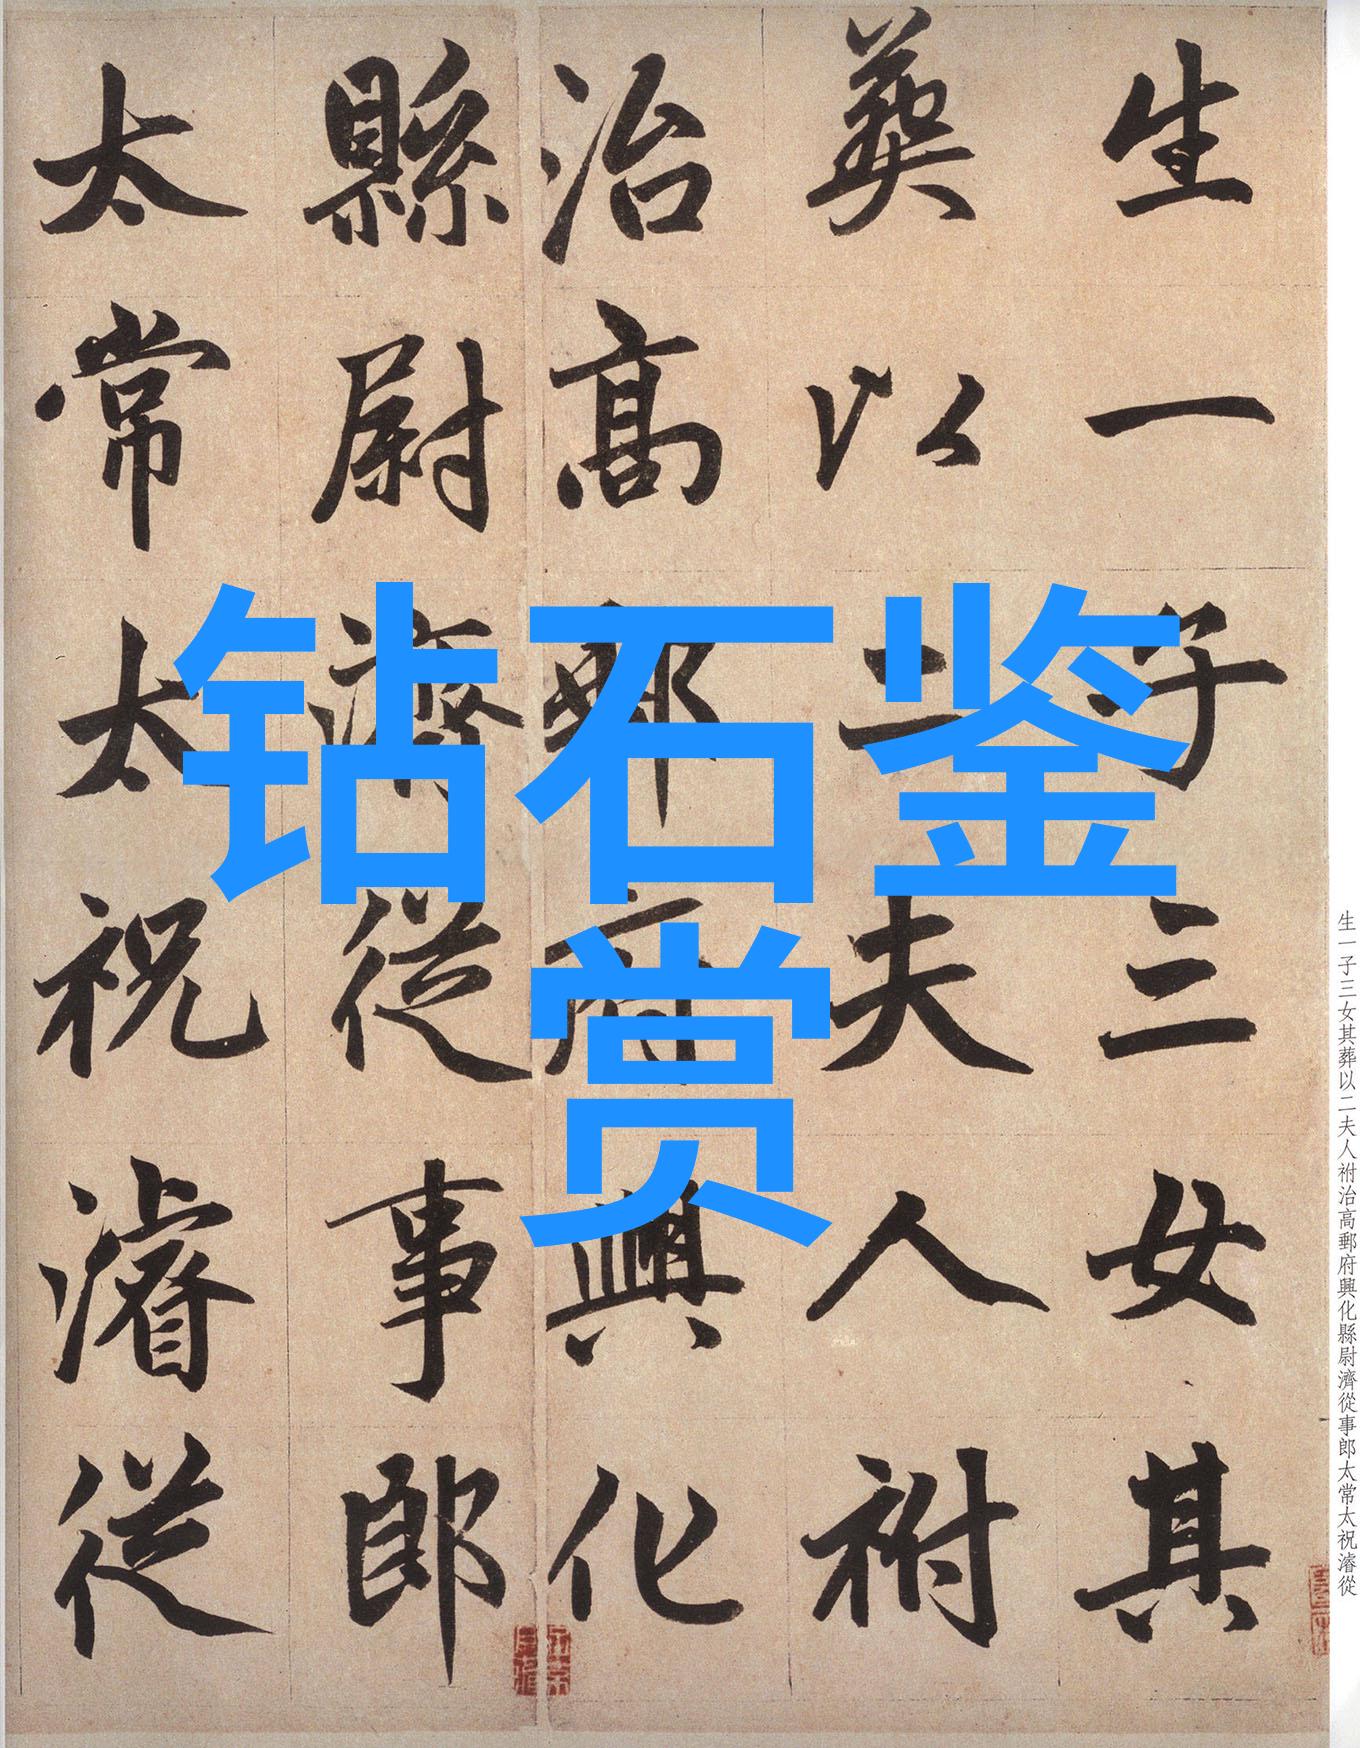 生一子三女其
葬以二夫人祔
治高郵府興化
縣尉濟從事郎
太常太祝濬從
钻石鉴
赏
生一子三女其葬以二夫人祔治高郵府興化縣尉濟從事郎太常太祝濬從